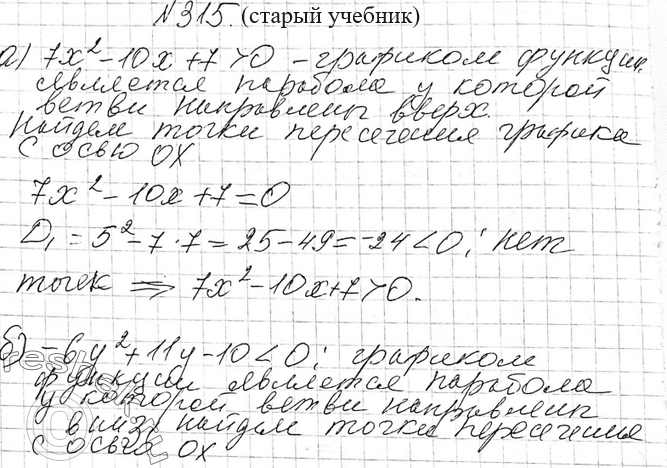 №315. (старый учебник)
а) 7x² - 10x + 7 > 0 - графиком функции
является парабола у которой
ветви направлены вверх.
Найдем точки пересечения графика
с осью OX
7x² - 10x + 7 = 0
D₁ = 5² - 7·7 = 25 - 49 = -24 < 0; нет
точек ⇒ 7x² - 10x + 7 > 0.
б) -6y² + 11y - 10 < 0; графиком
функции является парабола
у которой ветви направлены
вниз найдем точки пересечения
с осью OX